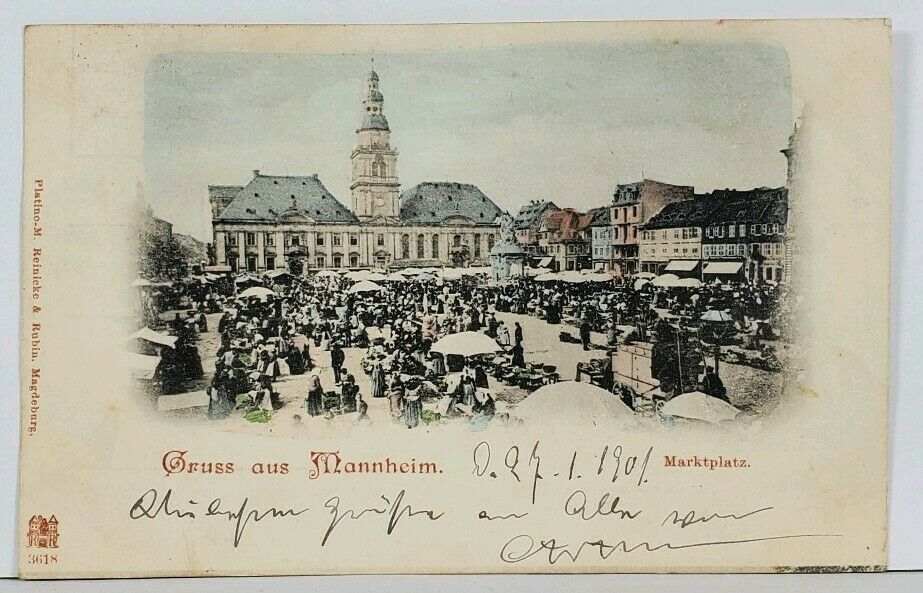 Platino-M. Reinicke & Rubin. Magdeburg,
Gruss aus Mannheim. D. 27. 1. 1901 Marktplatz.
Grüße an Alle von
3618